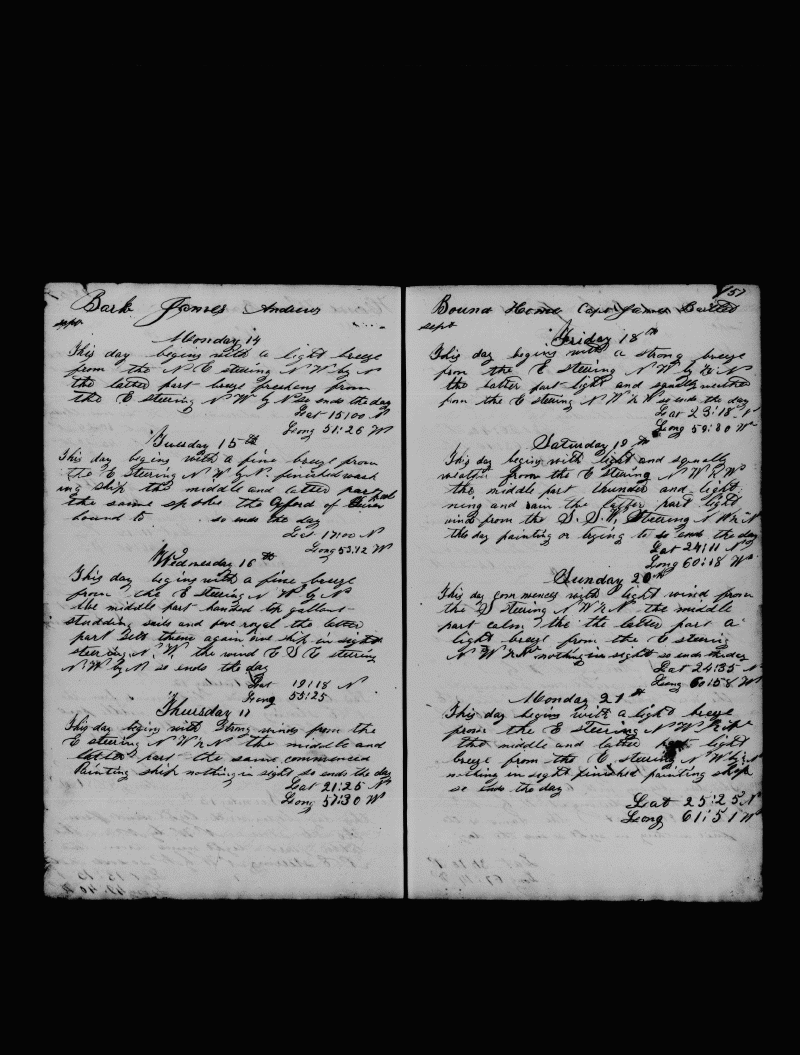 Bark James Andrews
Sept
Monday 14
This day begins with a light breeze
from the N E steering N W by N
the latter part breeze freshens from
the E steering N W by N so ends the day
Lat 15:00 N
Long 51:26 W
Tuesday 15th
This day begins with a fine breeze from
the E steering N W by N finished wash
ing ship the middle and latter part
the same spoke the of
bound to so ends the day
Lat 17:00 N
Long 53:12 W
Wednesday 16th
This day begins with a fine breeze
from the E steering N W by N
the middle part handed top gallant
studding sails and fore royal the latter
part sett them again one ship in sight
steering N W the wind E S E steering
N W by N so ends the day
Lat 19:18 N
Long 55:25
Thursday 17
This day begins with Strong winds from the
E steering N W by N the middle and
latter part the same commenced
Painting ship nothing in sight so ends the day
Lat 21:25 N
Long 57:30 W
157
Bound Home Capt James
Sept
Friday 18th
This day begins with a strong breeze
from the E steering N W by N
the latter part light and squally weather
from the E steering N W by W so ends the day
Lat 23:18 N
Long 59:20 W
Saturday 19th
This day begins with light and squally
weather from the E steering N W by W
the middle part thunder and light
ning and rain the latter part light
winds from the S S W Steering N W by N
the day painting or trying to so ends the day
Lat 24:11 N
Long 60:18 W
Sunday 20th
This day commences with light wind from
the S steering N W by N the middle
part calm the the latter part a
light breeze from the E steering
N W by N nothing in sight so ends the day
Lat 24:35 N
Long 60:58 W
Monday 21st
This day begins with a light breeze
from the E Steering N W
the middle and latter part light
breeze from the E steering N W by N
nothing in sight finished painting ship
so ends the day
Lat 25:25 N
Long 61:51 W